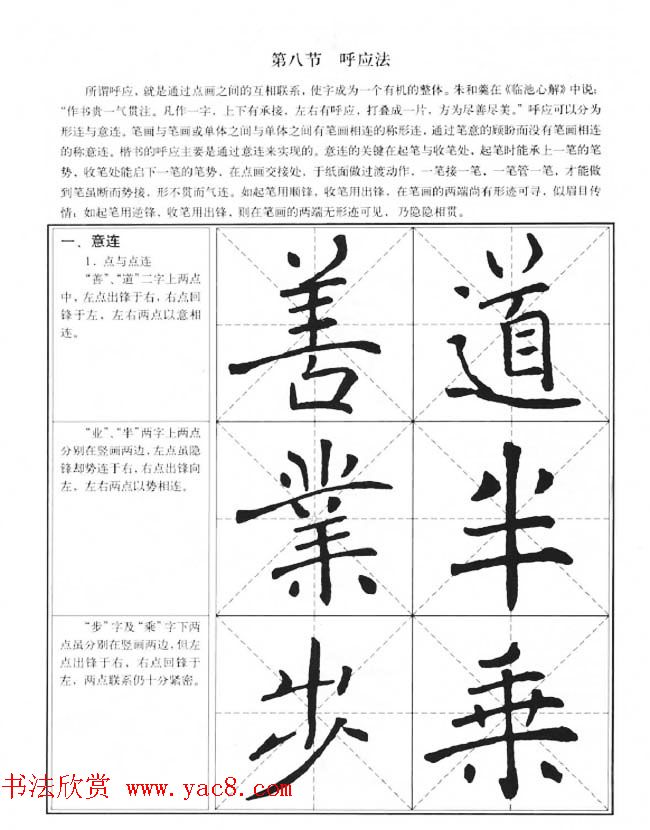 第八节 呼应法
所谓呼应,就是通过点画之间的互相联系,使字成为一个有机的整体。朱和羹在《临池心解》中说:
“作书贵一气贯注。凡作一字,上下有承接,左右有呼应,打叠成一片,方为尽善尽美。”呼应可以分为
形连与意连。笔画与笔画或单体之间与单体之间有笔画相连的称形连,通过笔意的顾盼而没有笔画相连
的称意连。楷书的呼应主要是通过意连来实现的。意连的关键在起笔与收笔处,起笔时能承上一笔的笔
势,收笔处能启下一笔的笔势,在点画交接处,于纸面做过渡动作,一笔接一笔,一笔管一笔,才能做
到笔虽断而势接,形不贯而气连。如起笔用顺锋,收笔用出锋,在笔画的两端尚有形迹可寻,似眉目传
情;如起笔用逆锋,收笔用出锋,则在笔画的两端无形迹可见,乃隐隐相贯。
一、意连
1. 点与点连
“善”、“道”二字上两点
中,左点出锋于右,右点回
锋于左,左右两点以意相
连。
善 道
“业”、“半”两字上两点
分别在竖画两边,左点虽隐
锋却势连于右,右点出锋向
左,左右两点以势相连。
業 半
“步”字及“乘”字下两
点虽分别在竖画两边,但左
点出锋于右,右点回锋于
左,两点联系仍十分紧密。
步 乘
书法欣赏 www.yac8.com